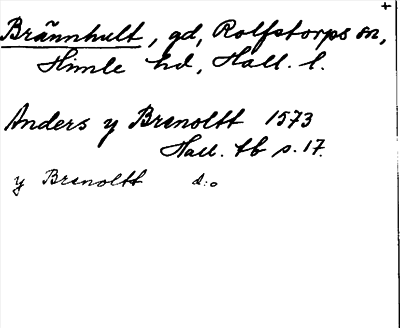 +
Brännhult, gd, Rolfstorps sn,
Himle hd, Hall. l.
Anders y Brenoltt 1573
Hall. tb s. 17.
y Brenoltt d:o